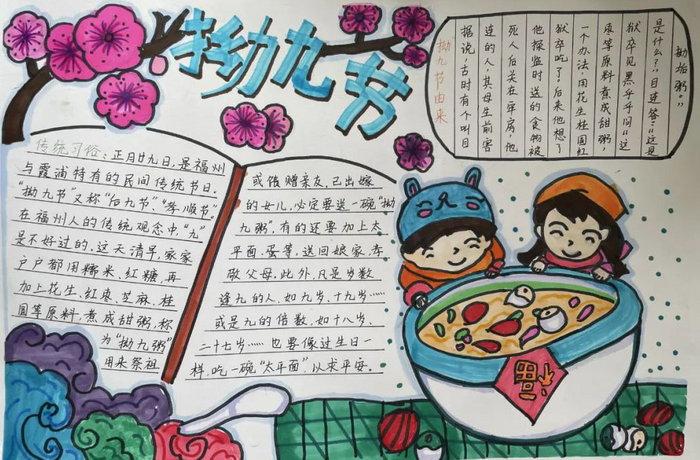 拗九节
拗九节由来
据说,古时有个叫目
连的人,其母生前害
死人后关在牢房,他
他探监时送的食物被
狱卒吃了,后来他想了
一个办法,用花生桂圆红
枣等原料煮成甜粥,
狱卒见黑乎乎问“这
是什么?”目连答:“这是
拗垢粥。”
传统习俗:正月廿九日,是福州
与霞浦特有的民间传统节日.
“拗九节”又称“后九节”“孝顺节”
在福州人的传统观念中,“九”
是不好过的.这天清早,家家
户户都用糯米、红糖,再
加上花生、红枣、芝麻、桂
圆等原料,煮成甜粥,称
为“拗九粥”
用来祭祖
或馈赠亲友,已出嫁
的女儿,必定要送一碗“拗
九粥”,有的还要加上太
平面、蛋等,送回娘家孝
敬父母.此外,凡是岁数
逢九的人,如九岁、十九岁……
或是九的倍数,如十八岁、
二十七岁……也要像过生日一
样,吃一碗“太平面”以求平安.
福